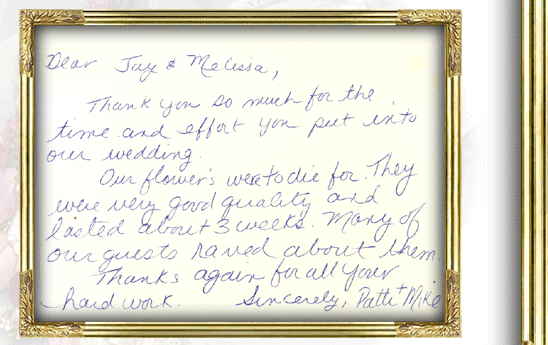 Dear Jay & Melissa,
Thank you so much for the
time and effort you put into
our wedding.
Our flower's were to die for. They
were very good quality and
lasted about 3 weeks. Many of
our guests raved about them.
Thanks again for all your
hard work. Sincerely, Patti + Mike